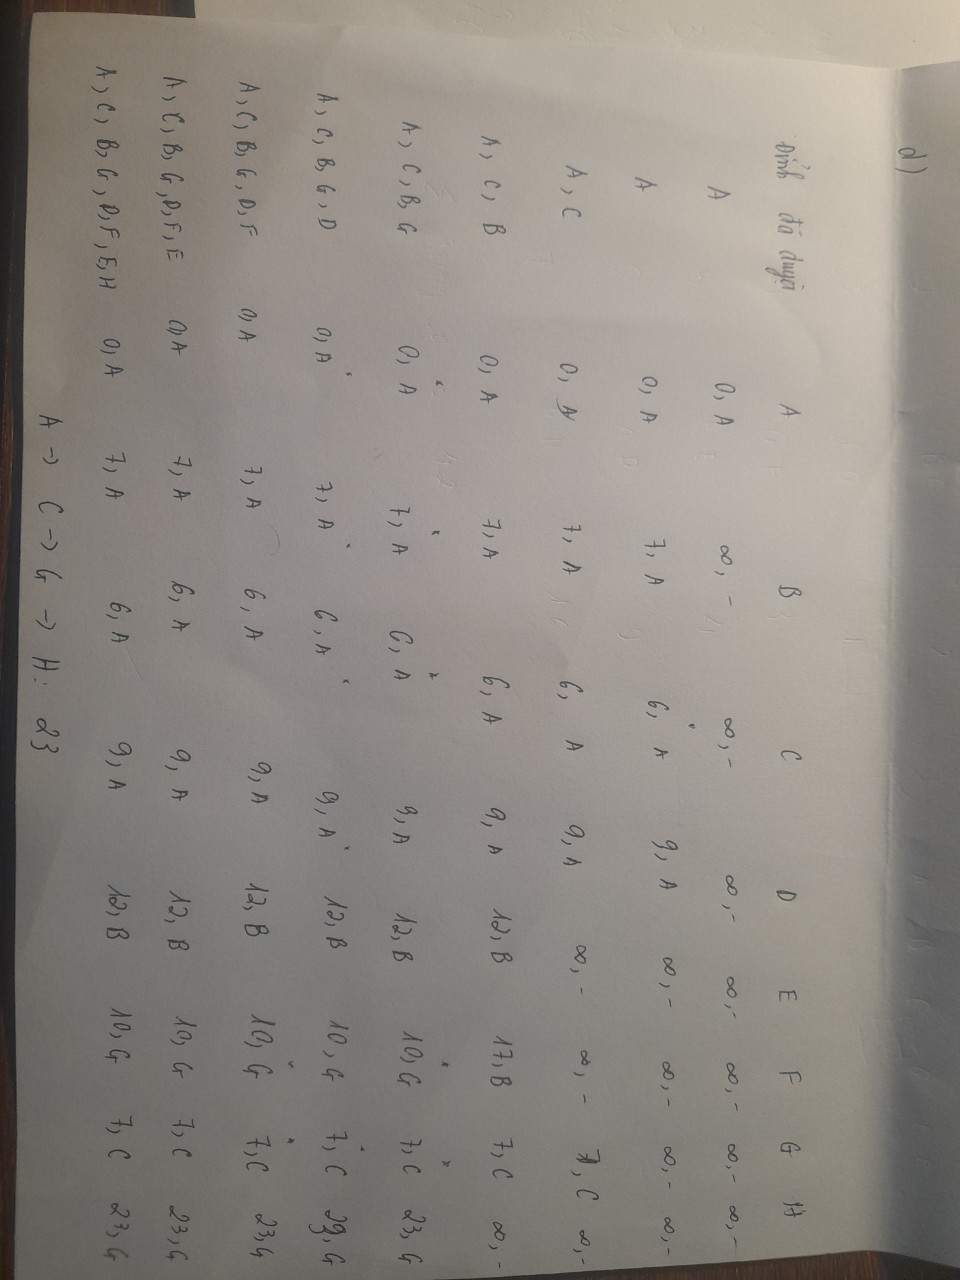 d)
Đỉnh đã duyệt A B C D E F G H
A 0, A ∞, - ∞, - ∞, - ∞, - ∞, - ∞, - ∞, -
A 0, A 7, A 6, A 9, A ∞, - ∞, - ∞, - ∞, -
A, C 0, A 7, A 6, A 9, A ∞, - ∞, - 7, C ∞, -
A, C, B 0, A 7, A 6, A 9, A 12, B 17, B 7, C ∞, -
A, C, B, G 0, A 7, A 6, A 9, A 12, B 10, G 7, C 23, G
A, C, B, G, D 0, A 7, A 6, A 9, A 12, B 10, G 7, C 23, G
A, C, B, G, D, F 0, A 7, A 6, A 9, A 12, B 10, G 7, C 23, G
A, C, B, G, D, F, E 0, A 7, A 6, A 9, A 12, B 10, G 7, C 23, G
A, C, B, G, D, F, E, H 0, A 7, A 6, A 9, A 12, B 10, G 7, C 23, G
A → C → G → H: 23